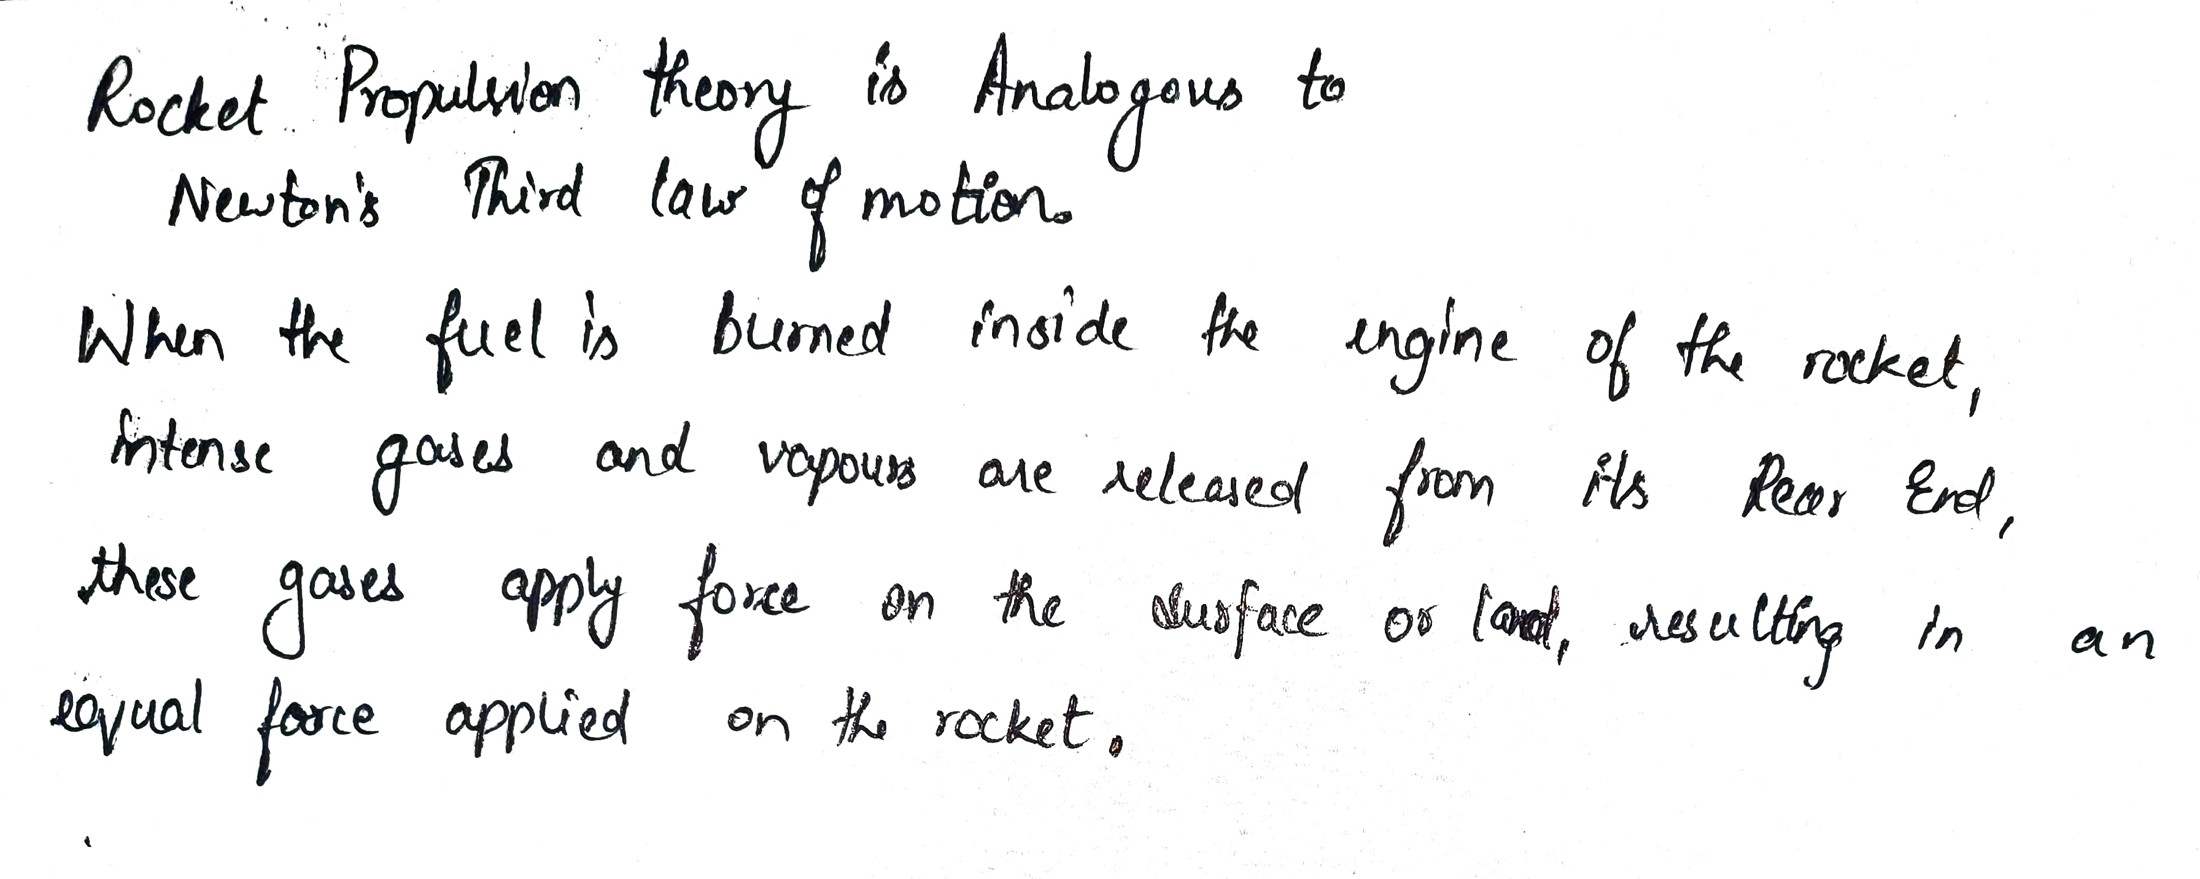 Rocket Propulsion theory is Analogous to
Newton's Third law of motion.
When the fuel is burned inside the engine of the rocket,
intense gases and vapours are released from its Rear End,
these gases apply force on the surface or land, resulting in an
equal force applied on the rocket.